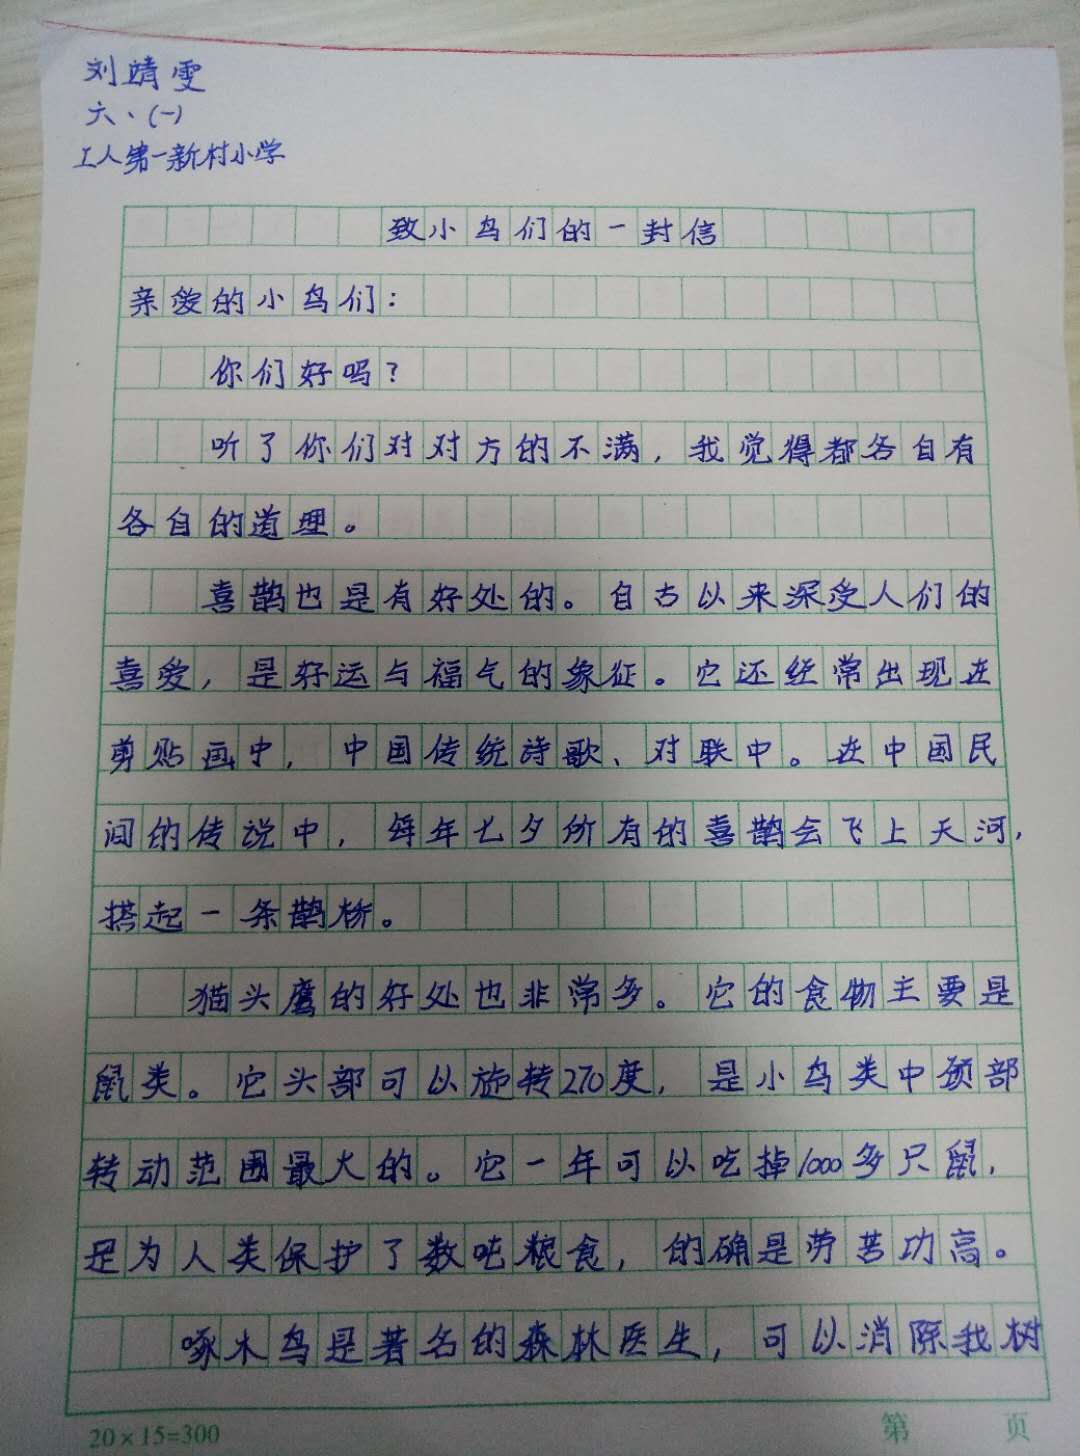 刘靖雯
六、(一)
工人第一新村小学
致小鸟们的一封信
亲爱的小鸟们：
你们好吗？
听了你们对对方的不满，我觉得都各自有
各自的道理。
喜鹊也是有好处的。自古以来深受人们的
喜爱，是好运与福气的象征。它还经常出现在
剪贴画中，中国传统诗歌、对联中。在中国民
间的传说中，每年七夕所有的喜鹊会飞上天河，
搭起一条鹊桥。
猫头鹰的好处也非常多。它的食物主要是
鼠类。它头部可以旋转270度，是小鸟类中颈部
转动范围最大的。它一年可以吃掉1000多只鼠，
是为人类保护了数吨粮食，的确是劳苦功高。
啄木鸟是著名的森林医生，可以消除我树
20×15=300
第 页